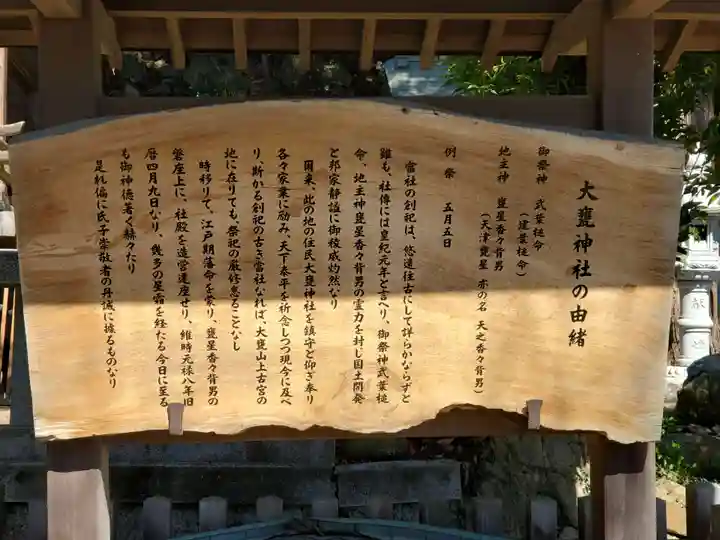 大甕神社の由緒
御祭神 武葉槌命
(建葉槌命)
地主神 甕星香々背男
(天津甕星 亦の名 天之香々背男)
例祭 五月五日
當社の創祀は、悠遠往古にして詳らかならずと
雖も、社傳には皇紀元年と言へり、御祭神武葉槌
命、地主神甕星香々背男の霊力を封じ国土開発
と邦家静謐に御稜威灼然なり
爾来、此の地の住民大甕神社を鎮守と仰ぎ奉り
各々家業に励み、天下泰平を祈念しつつ現今に及べ
り、斯かる創祀の古き當社なれば、大甕山上古宮の
地に在りても、祭祀の厳修怠ることなし
時移りて、江戸期藩命を蒙り、甕星香々背男の
磐座上に、社殿を造営遷座せり、維時元禄八年旧
暦四月九日なり、幾多の星霜を経たる今日に至る
も御神徳著く赫々たり
是れ偏に氏子崇敬者の丹誠に據るものなり
献